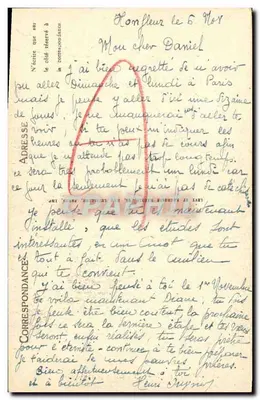 Honfleur le 6 Nov
Mon cher Daniel
j'ai bien regretté de n'avoir
pu aller Dimanche et lundi à Paris
mais je pense y aller d'ici une dizaine
de jours je ne manquerai d'aller te
voir si tu peux m'indiquer les
heures où tu n'as pas de cours afin
que je n'attende pas trop longtemps.
ce sera très probablement un lundi car
ce jour là seulement je n'ai pas de catéchisme
je pense que tu es maintenant
installé, que les études sont
intéressantes, en un mot que tu
es tout à fait dans le milieu
qui te convient.
J'ai bien pensé à toi le 1er Novembre
te voilà maintenant Diacre, tu dois
je pense être bien content, la prochaine
fois ce sera la dernière étape et tes vœux
seront enfin réalisés, tu seras prêtre
pour l'éternité - continue à te bien préparer
je t'aiderai de mes pauvres prières.
Bien affectueusement à toi
et à bientôt Henri
N'écrire que sur
le côté réservé à
la correspondance
ADRESSE
CORRESPONDANCE